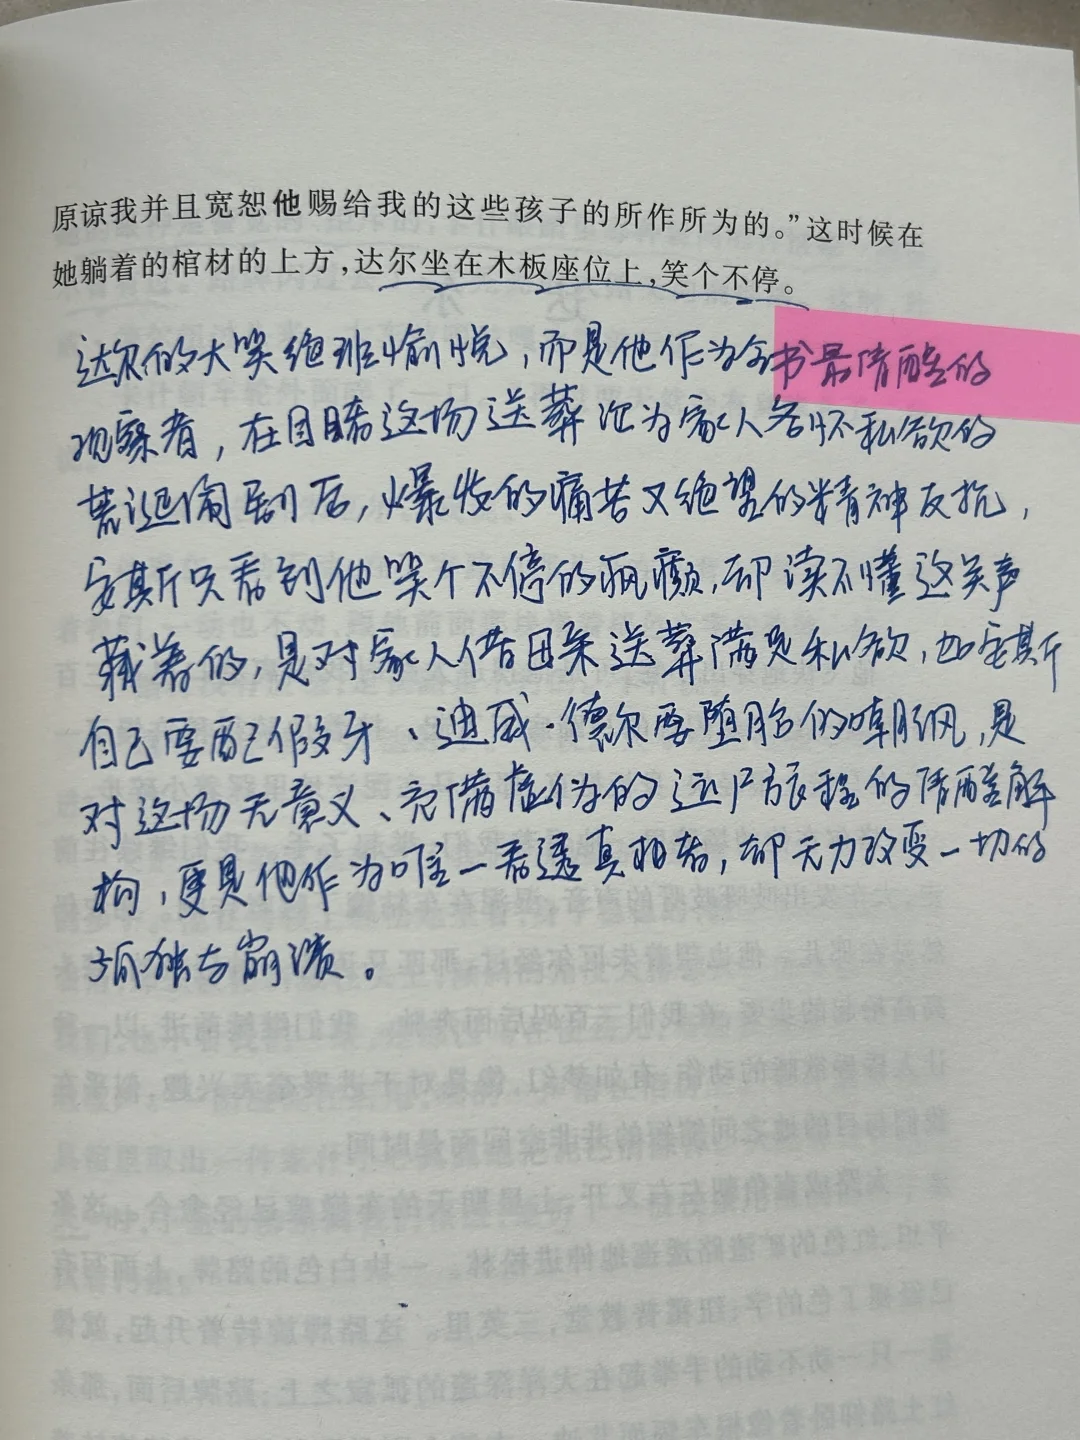 原谅我并且宽恕他赐给我的这些孩子的所作所为的。”这时候在
她躺着的棺材的上方,达尔坐在木板座位上,笑个不停。
达尔的大笑绝非愉悦，而是他作为全书最清醒的
观察者，在目睹这场送葬沦为家人各怀私欲的
荒诞闹剧后，爆发的痛苦又绝望的精神反抗，
安斯只看到他笑个不停的疯癫，却读不懂这笑声
藏着的，是对家人借母亲送葬满足私欲，如安斯
自己要配假牙、迪威·德尔要堕胎的嘲讽，是
对这场无意义、充满虚伪的运尸旅程的清醒解
构，更是他作为唯一看透真相者，却无力改变一切的
孤独与崩溃。